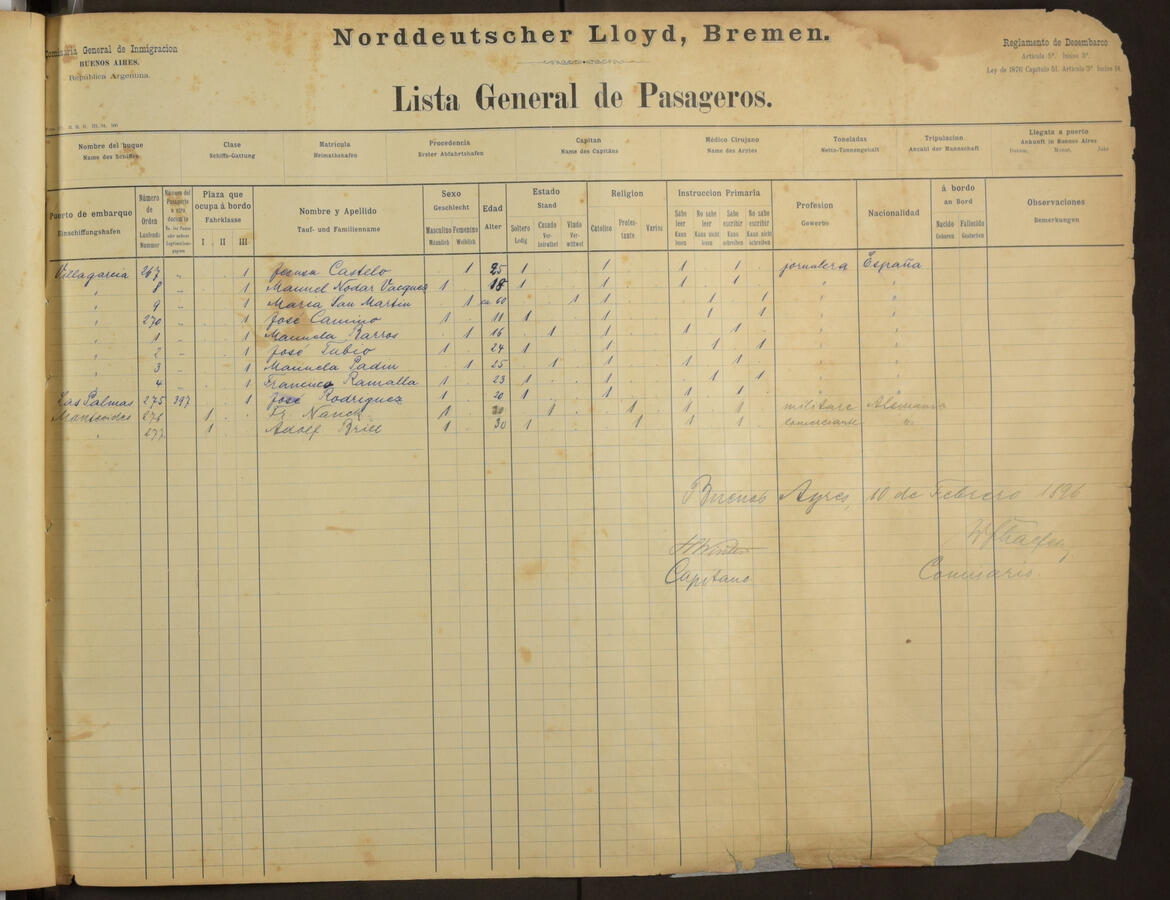 Norddeutscher Lloyd, Bremen.
Comisaria General de Inmigracion
BUENOS AIRES.
República Argentina.
Reglamento de Desembarco
Articulo 5º. Inciso 3º.
Ley de 1876 Capitulo 51. Articulo 3º Inciso 14.
Lista General de Pasageros.
Nombre del buque Clase Matricula Procedencia Capitan Médico Cirujano Toneladas Tripulacion Llegata a puerto
Name des Schiffes Schiffs-Gattung Heimathshafen Erster Abfahrtshafen Name des Capitäns Name des Arztes Netto-Tonnengehalt Anzahl der Mannschaft Ankunft in Buenos Aires
Datum, Monat, Jahr
Puerto de embarque Número de Orden Plaza que ocupa á bordo Nombre y Apellido Sexo Edad Estado Religion Instruccion Primaria Profesion Nacionalidad á bordo Observaciones
Einschiffungshafen Laufende Nummer Fahrklasse Tauf- und Familienname Geschlecht Alter Stand Gewerbe an Bord Bemerkungen
I II III Masculino Femenino Soltero Casado Viudo Catolico Protestante Varios Sabe leer No sabe leer Sabe escribir No sabe escribir Nacido Fallecido
Männlich Weiblich Ledig Verheirathet Verwittwet Kann lesen Kann nicht lesen Kann schreiben Kann nicht schreiben Geboren Gestorben
Villagarcia 267 " 1 Castelo 1 25 1 1 1 1 jornalera España
" 8 " 1 Manuel Nodar Vacquez 1 18 1 1 1 1 " "
" 9 " 1 Maria San Martin 1 ca 60 1 1 1 1 " "
" 270 " 1 José Camino 1 11 1 1 1 1 " "
" 1 " 1 Manuela Barros 1 16 1 1 1 1 " "
" 2 " 1 José Tubio 1 24 1 1 1 1 " "
" 3 " 1 Manuela Padin 1 25 1 1 1 1 " "
" 4 " 1 Francisco Ramalla 1 23 1 1 1 1 " "
Las Palmas 275 397 1 José Rodriguez 1 20 1 1 1 1 " "
Montevideo 276 1 Fr. Nanck 1 1 1 1 1 militare Alemania
" 277 1 Adolf Brill 1 30 1 1 1 1 comerciante "
Buenos Ayres, 10 de Febrero 1896
H Winter
Capitano Comisario.